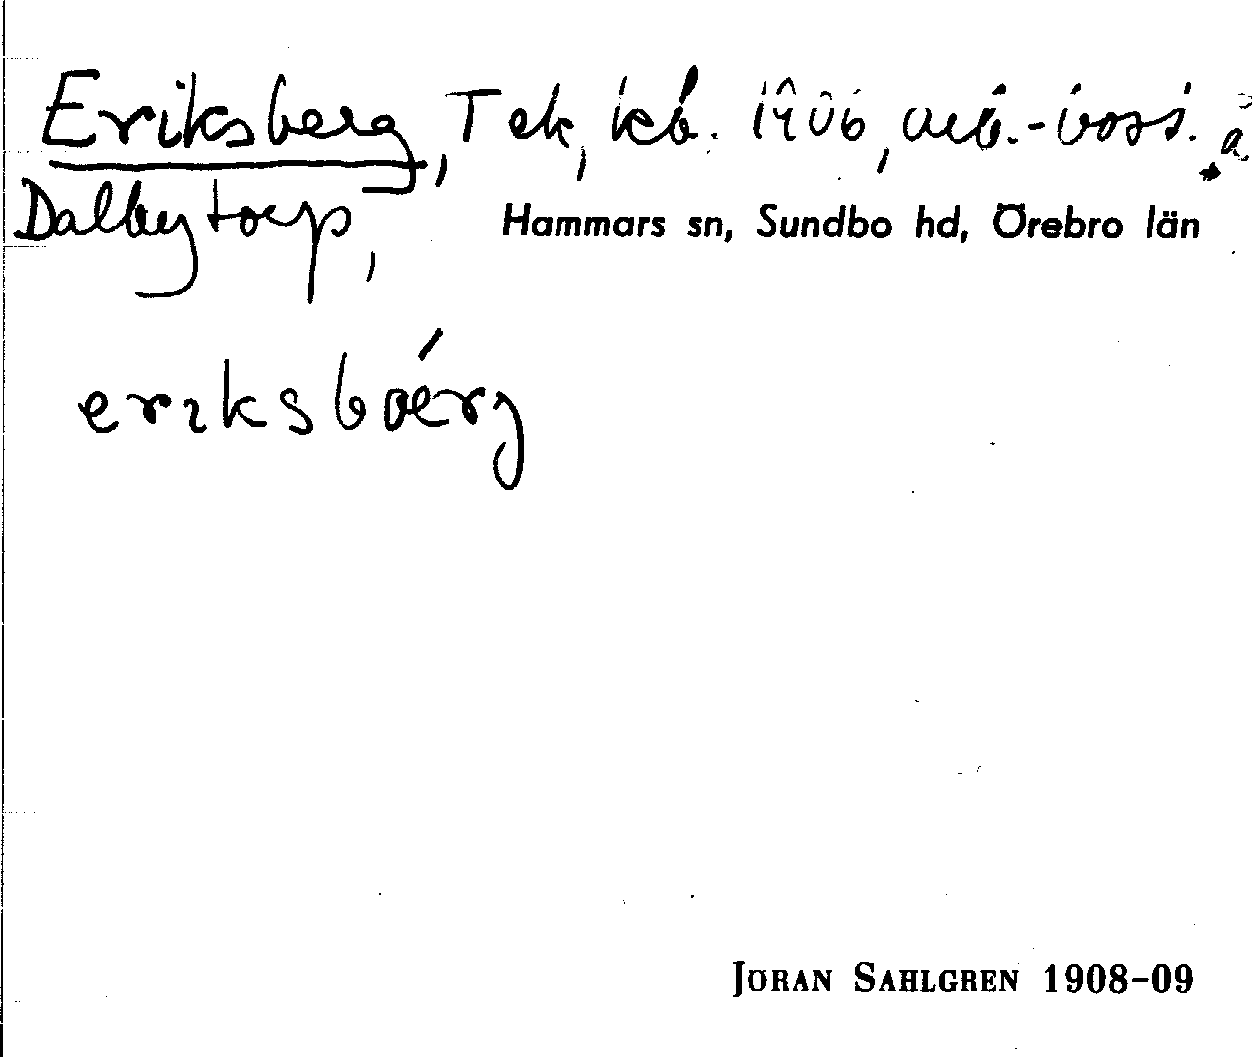 Eriksberg, T ek, kb. 1906, arb.-bost. å
Dalbytorp, Hammars sn, Sundbo hd, Örebro län
erıksbǽrg
JÖRAN SAHLGREN 1908-09